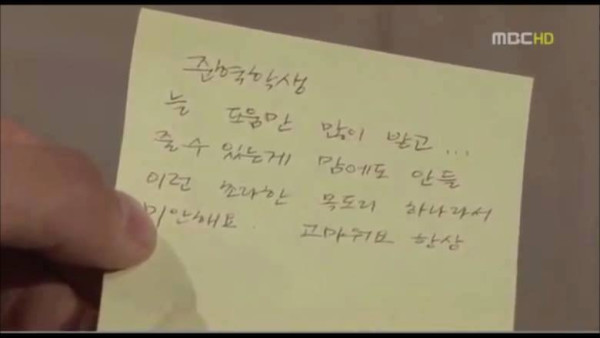 MBC HD
준혁학생
늘 도움만 많이 받고...
줄 수 있는게 맘에도 안들
이런 초라한 목도리 하나라서
미안해요. 고마워요 항상